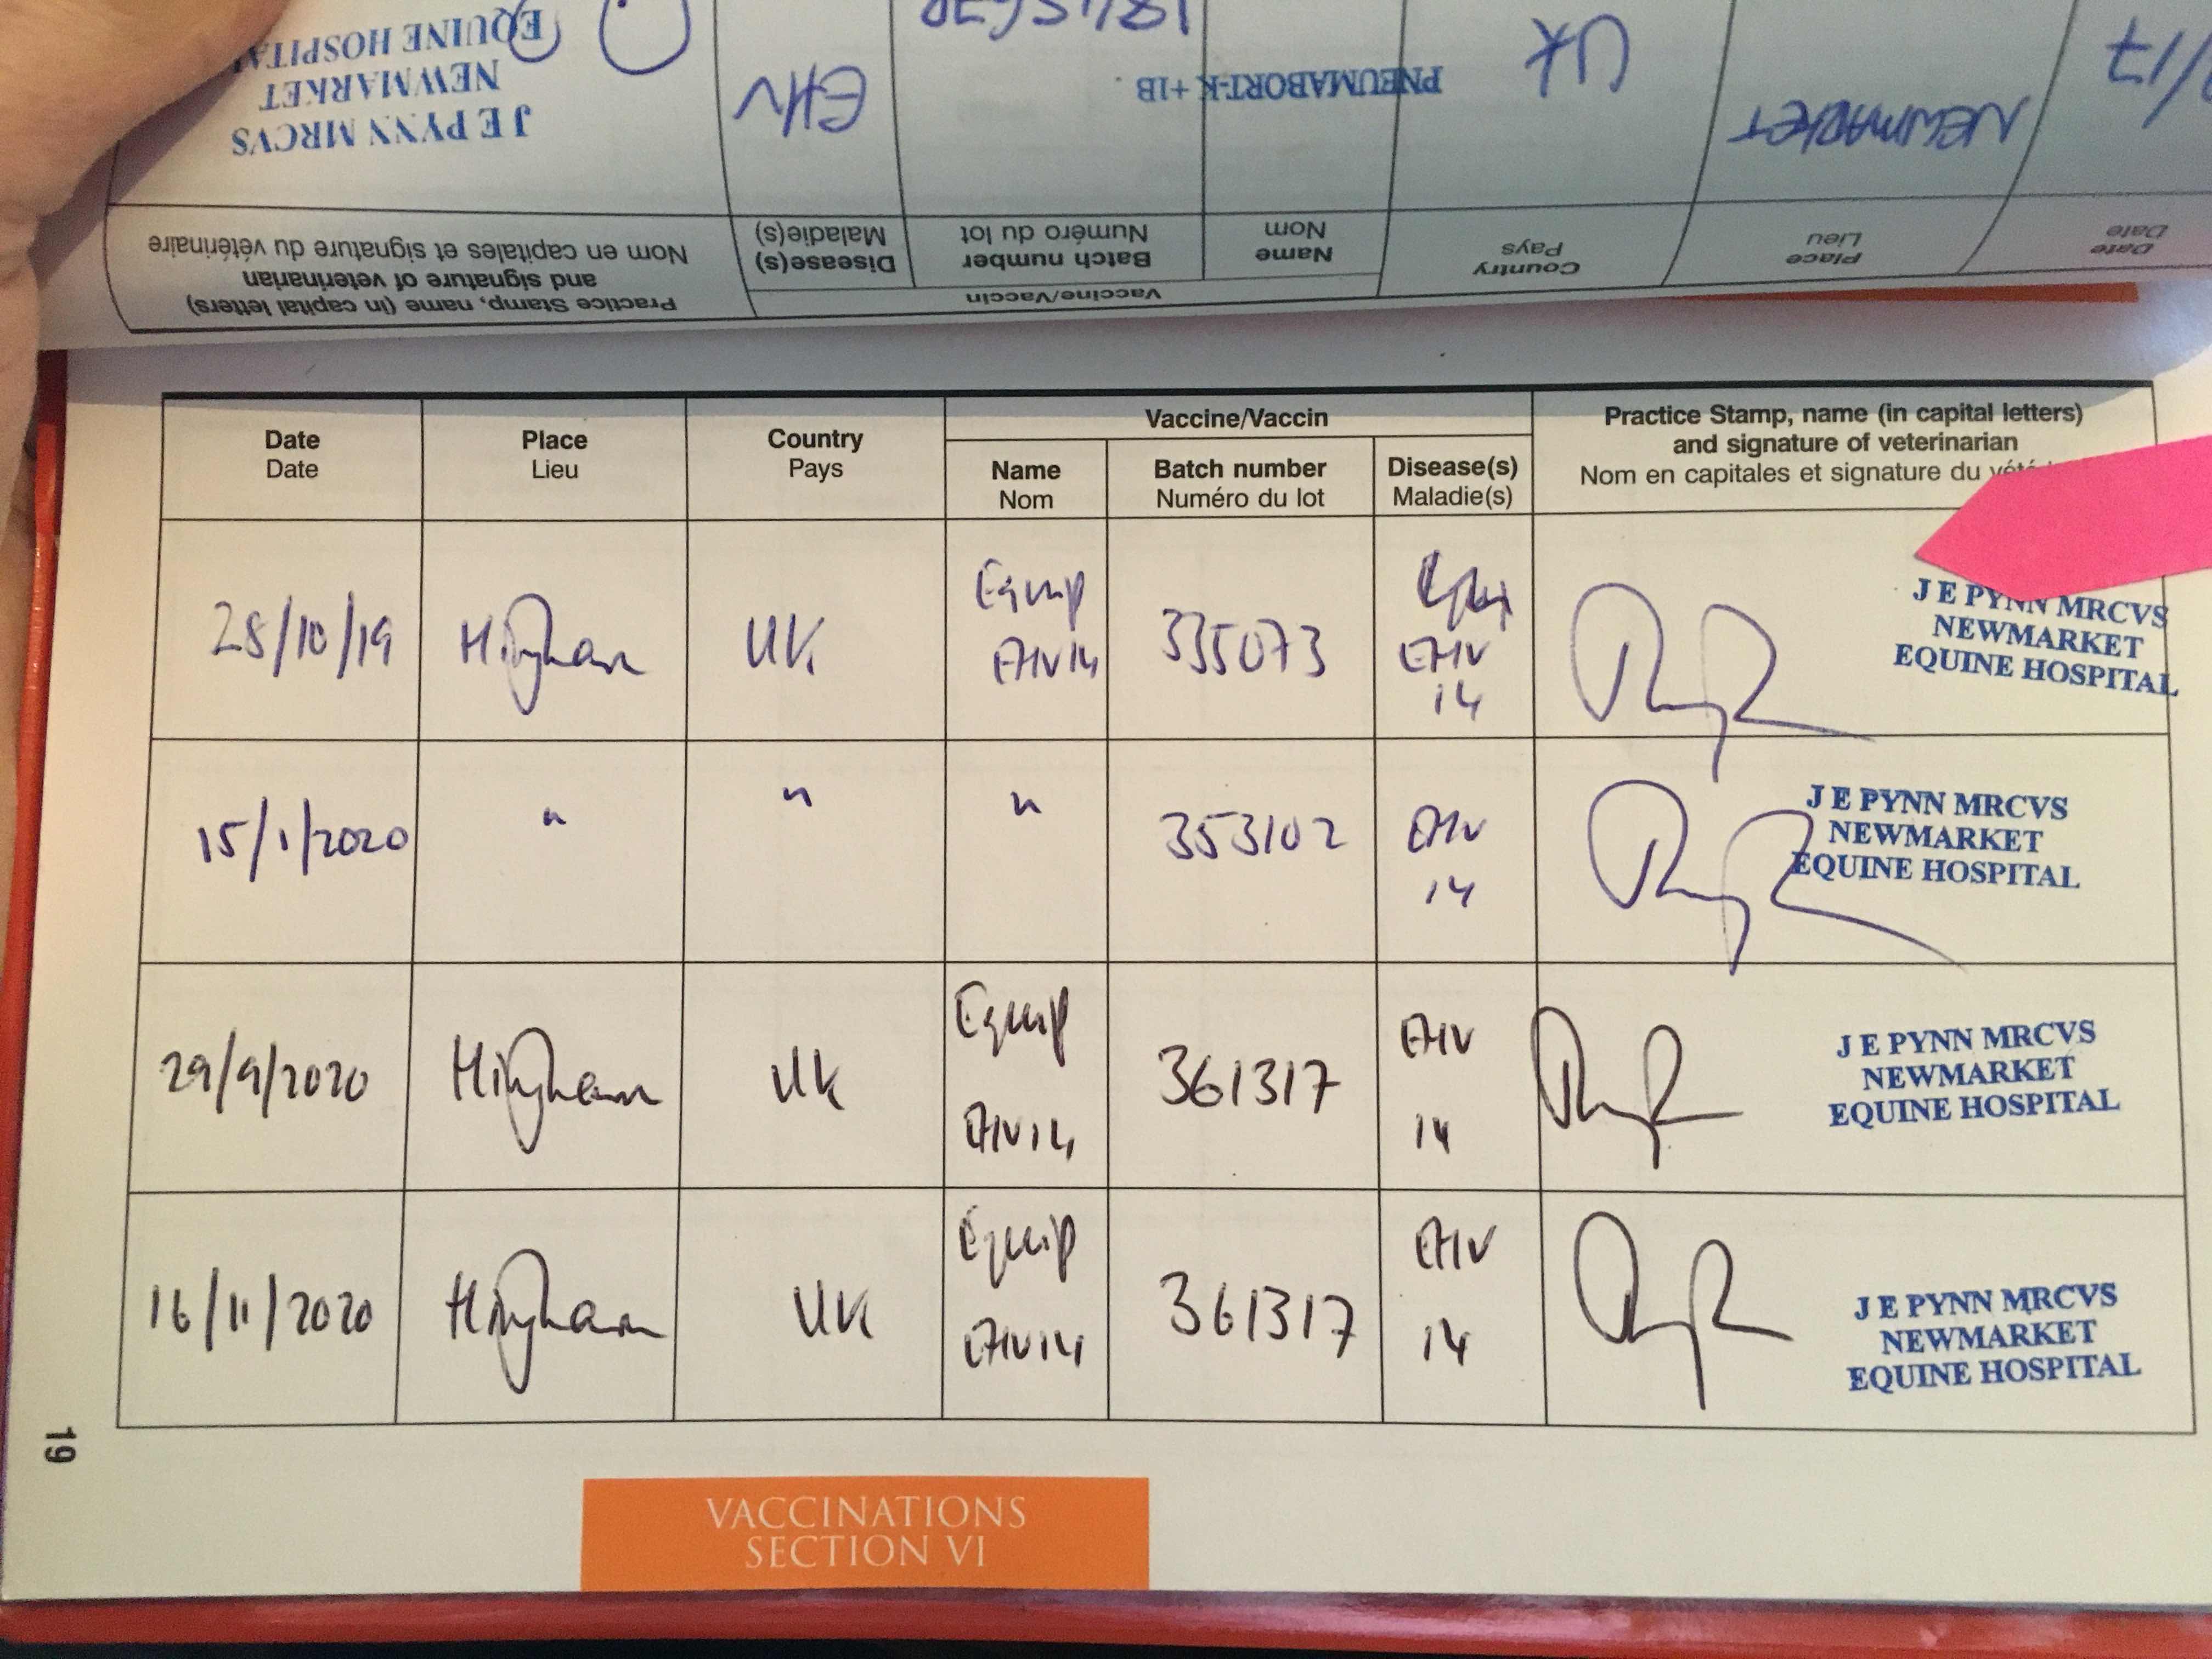 J E PYNN MRCVS
NEWMARKET
EQUINE HOSPITAL
EHV
PNEUMABORT-K +1B
UK
NEWMARKET
/17
Practice Stamp, name (in capital letters)
and signature of veterinarian
Nom en capitales et signature du vétérinaire
Vaccine/Vaccin
Disease(s)
Maladie(s)
Batch number
Numéro du lot
Name
Nom
Country
Pays
Place
Lieu
Date
Date
Date
Date
Place
Lieu
Country
Pays
Vaccine/Vaccin
Name
Nom
Batch number
Numéro du lot
Disease(s)
Maladie(s)
Practice Stamp, name (in capital letters)
and signature of veterinarian
Nom en capitales et signature du
28/10/19
Hingham
UK
Equip
EHV14
335073
EHV
14
J E PYNN MRCVS
NEWMARKET
EQUINE HOSPITAL
15/1/2020
"
"
"
353102
EHV
14
J E PYNN MRCVS
NEWMARKET
EQUINE HOSPITAL
29/9/2020
Hingham
UK
Equip
EHV14
361317
EHV
14
J E PYNN MRCVS
NEWMARKET
EQUINE HOSPITAL
16/11/2020
Hingham
UK
Equip
EHV14
361317
EHV
14
J E PYNN MRCVS
NEWMARKET
EQUINE HOSPITAL
19
VACCINATIONS
SECTION VI